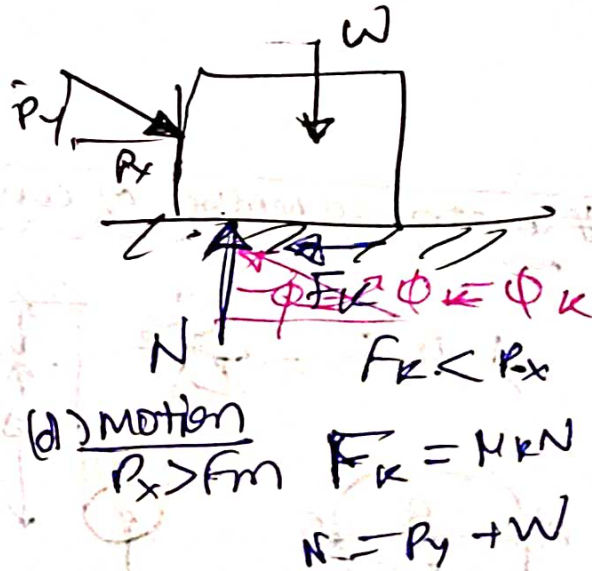 W
Py
Px
Fk φk = φk
N
Fk < Px
(d) motion
Px > Fm
Fk = μkN
N = Py + W